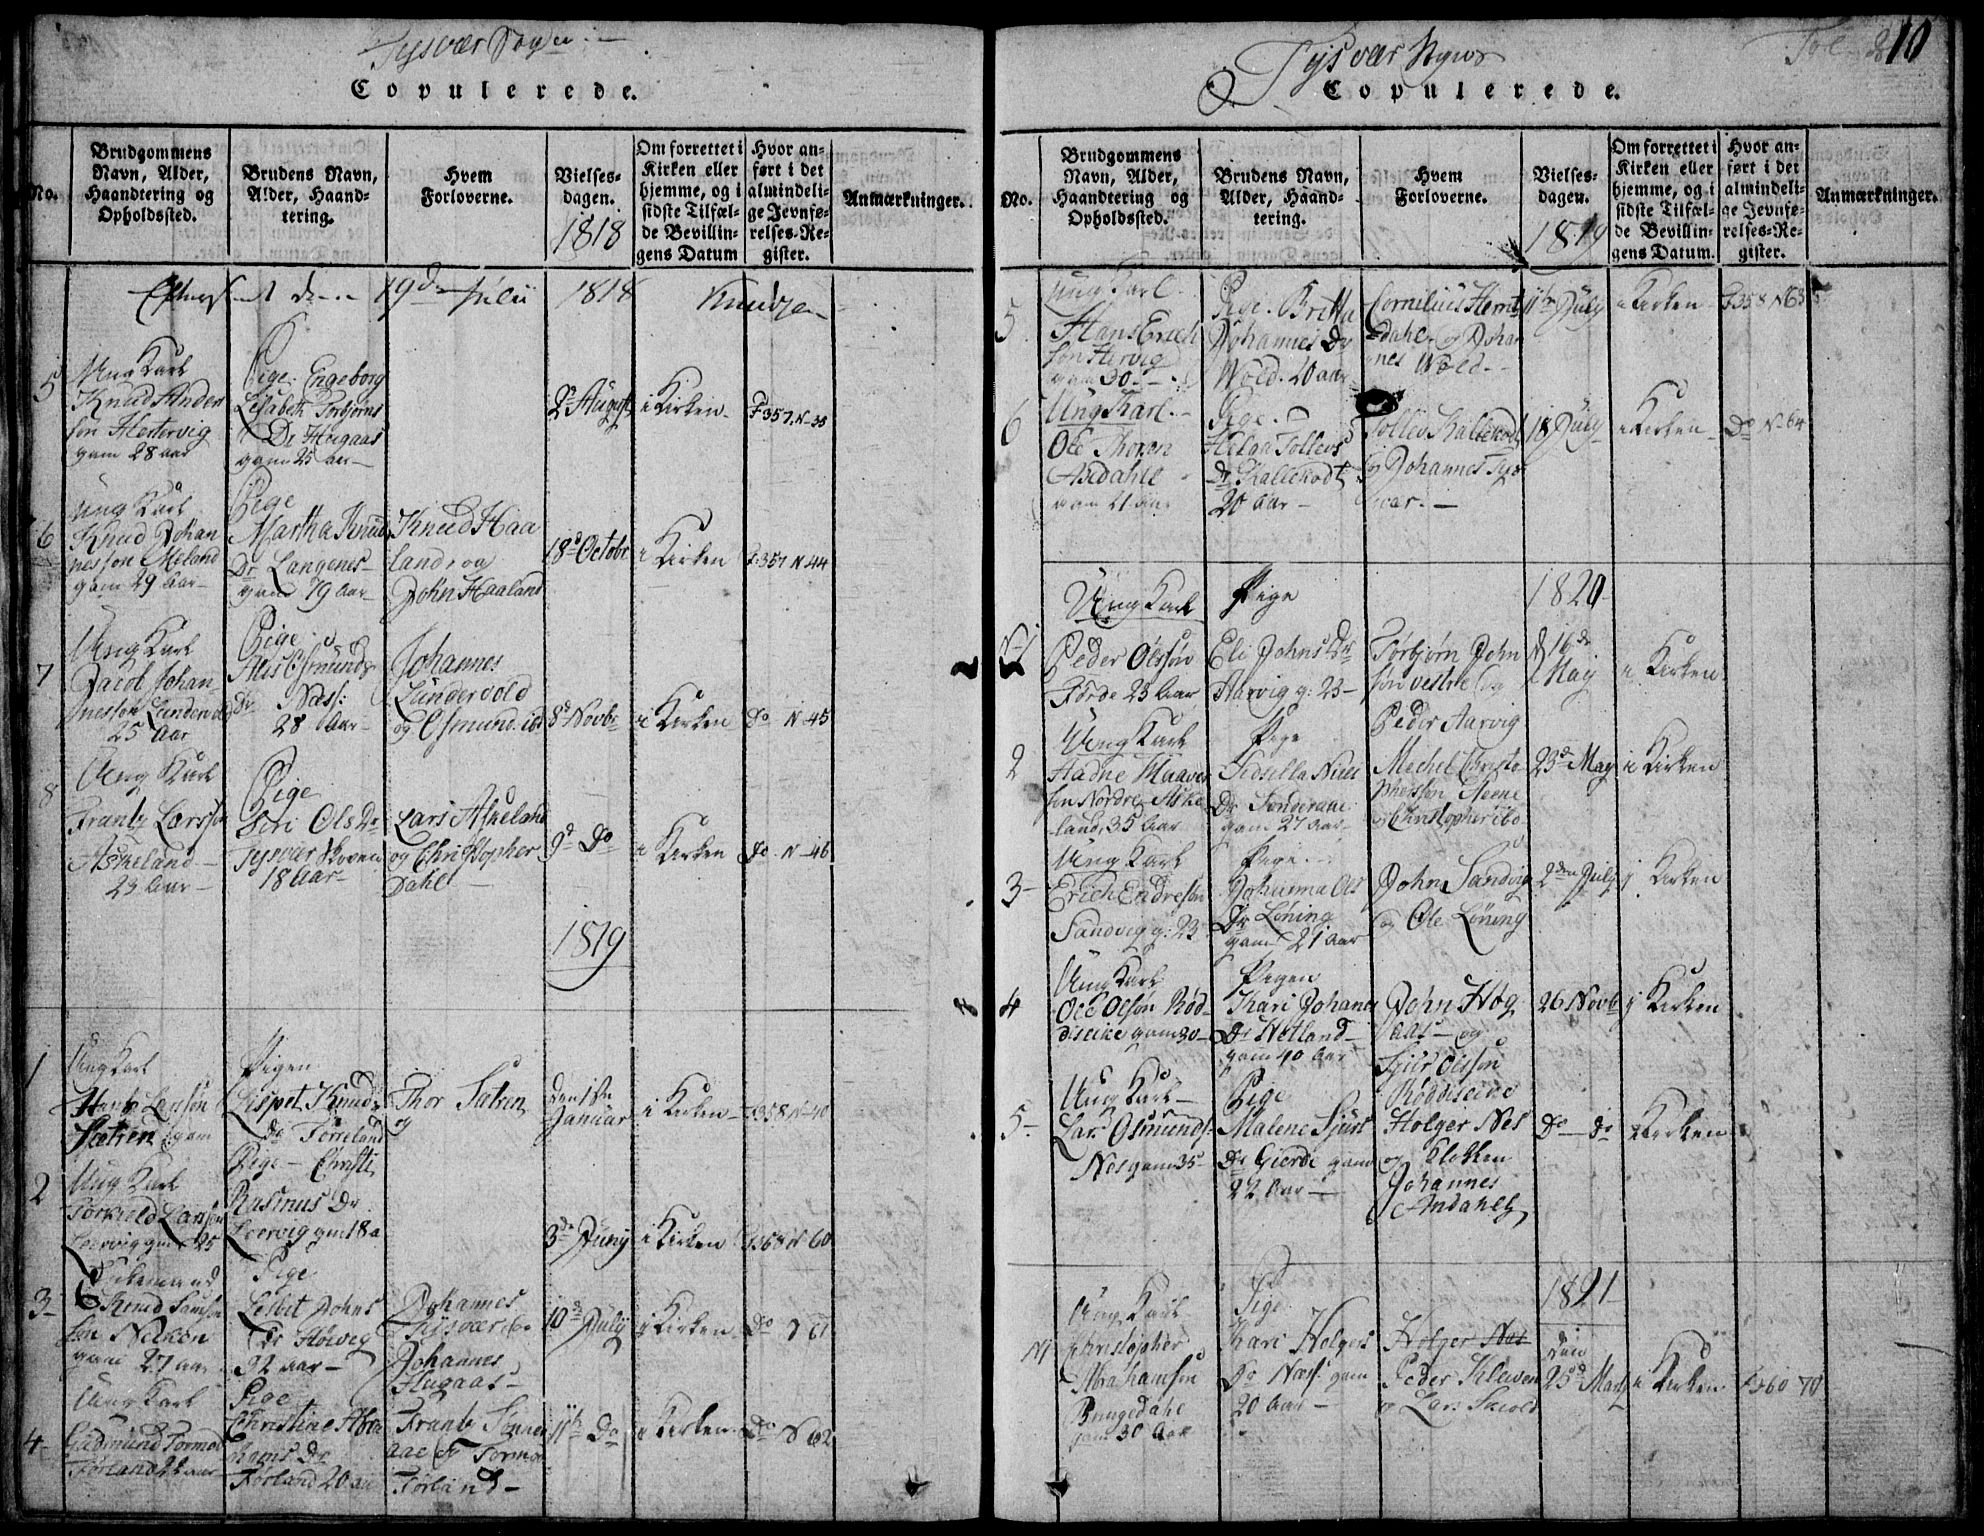 Tysvær Sogn
Copulerede.
No.
Brudgommens
Navn, Alder,
Haandtering og
Opholdssted.
Brudens Navn,
Alder, Haand-
tering.
Hvem
Forloverne.
Vielses-
dagen.
1818
Om forrettet i
Kirken eller
hjemme, og i
sidste Tilfæl-
de Bevillin-
gens Datum
Hvor an-
ført i det
almindeli-
ge Jevnfø-
relses-Re-
gister.
Anmærkninger.
19de Julii 1818 Knudzen
5
Ung Karl
Knud Ander
søn Hestervig
gam 28 aar
Pige. Engeborg
Lisabeth Torbjørns
Dr Hugaas
gam 25 aar
2d August
i Kirken
F 357. N 38
6
Ung Karl
Knud Johan
nessøn Meland
gam 29 Aar
Pige
Martha Knuds
Dr Langenes
gam 79 Aar
Knud Haa
land, og
John Haaland
18d Octobr
i Kirken
F. 357 N 44
7
Ung Karl
Jacob Johan
nessøn Lundervold
25 Aar
Pige
Alis Osmunds
Dr Næss:
28 Aar
Johannes
Lundervold
og Osmund ibd
8d Novbr
i Kirken
Do N 45
8
Ung Karl
Frantz Larssøn
Askeland
23 Aar
Pige
Siri Ols Dr
Tysvær Skoven
18 Aar
Lars Askeland
og Christopher
Dahl
9d Do
i Kirken
Do N 46
1819
1
Ung Karl
Larssøn
Sætren gam
Pigen
Lispet Knuds
Dr Førreland
Thor Sætren
og
den 1ste
Januar
i Kirken
F 358 N 40
2
Ung Karl
Torkield Larssøn
Leervig gm 25
Pige Christi
Rasmus Dr
Leervig gm 18 a
3de Juny
i Kirken
F 368 N 60
3
Enkemand
Knud Samson
søn Nækøn
gam 27 aar
Pige
Lesbet Johns
Dr Støvig
32 aar
Johannes
Tysvær og
Johannes
Hugaas
10de July
i Kirken
Do N 61
4
Ung Karl
Gudmund Tormod
Førland 24 aar
Pige
Christine Abra
hams Dr
Førland 20 aar
Frantz Sønden
aae og Tormod
Førland
11te Do
i Kirken
Do N 62
Tysvær Sogns
Fol 8
10
Copulerede.
No.
Brudgommens
Navn, Alder,
Haandtering og
Opholdssted.
Brudens Navn,
Alder, Haand-
tering.
Hvem
Forloverne.
Vielses-
dagen.
1819
Om forrettet i
Kirken eller
hjemme, og i
sidste Tilfæl-
de Bevillin-
gens Datum.
Hvor an-
ført i det
almindeli-
ge Jevnfø-
relses-Re-
gister.
Anmærkninger.
5
Ung Karl
Hans Erich
søn Hervig
gam 30
Pige. Britta
Johannes Dr
Wold. 20 aar
Cornelius Hernts
dahl og Johan
nes Wold.
11te July
i Kirken
F 358 N 63
6
Ung Karl
Ole Thoren
Asedahle
gam 21 aar
Pige
Helga Tollevs
Dr Kallekodt
20 Aar
Tollev Kallekodt
og Johannes Tys
vær.
18 July
i Kirken
Do N 64
1820
N 1
Ung Karl
Peder Olssøn
Førde 23 Aar
Pige
Eli Johns Dr
Aarvig g: 23
Torbjørn John
søn vestre og
Peder Aarvig
d 16de
May
i Kirken
2
Ung Karl
Aadne Maaves
søn Nordre Aske
land, 35 Aar
Pige
Sidsella Niels
Dr Sønderaae
gam 27 Aar
Mechel Christo
phersøn Steene
og Christopher ibd.
23d May
i Kirken
3
Ung Karl
Erich Endresøn
Sandvig g: 23
Pige.
Johanna Ols
Dr Løning
gam 21 Aar
John Sandvig
og Ole Løning
2den July
i Kirken
4
Ung Karl
Ole Olsøn Rød
diseine gam 30
Pigen
Kari Johanes
Dr Hetland
gam 40 Aar
John Høg
aas og
Siur Olssøn
Røddiseine
26 Novbr
i Kirken
5
Ung Karl
Lars Osmunds
Nes gam 35
Pige
Malene Sjurs
Dr Gierde gam
22 Aar
Holger Nes
og Klokken
Johannes
Andahls
Do Do
i Kirken
1821
N 1
Ung Karl
Christopher
Abrahamsøn
Bruugedahl
gam 30 Aar
Pige
Kari Holgers
Dr Næss: gam
20 Aar
Holger Næs
Peder Klewen
og Lars Saiold
den
25d Marty
i Kirken
F 360 70